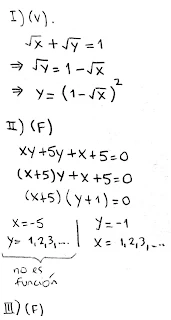 I) (V).
√x + √y = 1
⇒ √y = 1 - √x
⇒ y = (1 - √x)²
II) (F)
xy + 5y + x + 5 = 0
(x+5)y + x + 5 = 0
(x+5) (y+1) = 0
x = -5 | y = -1
y = 1, 2, 3, ... | x = 1, 2, 3, ...
no es
función
III) (F)